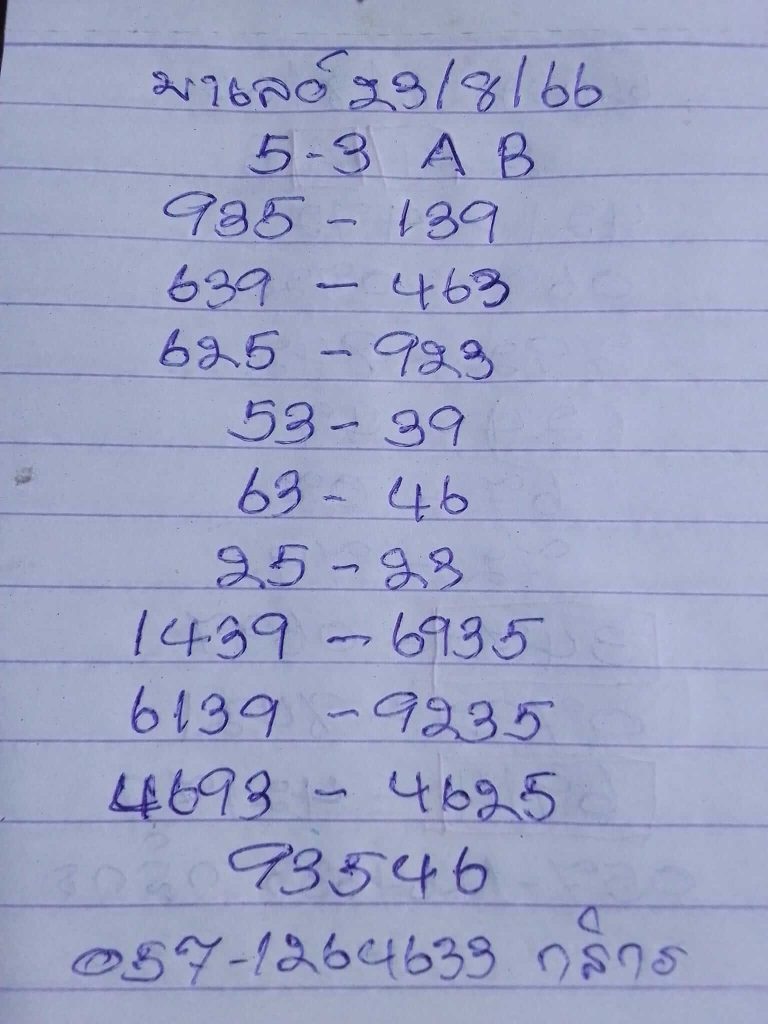 มาเลย์ 23/8/66
5-3 A B
935 - 139
639 - 463
625 - 923
53 - 39
63 - 46
25 - 23
1439 - 6935
6139 - 9235
4693 - 4625
93546
057-1264633